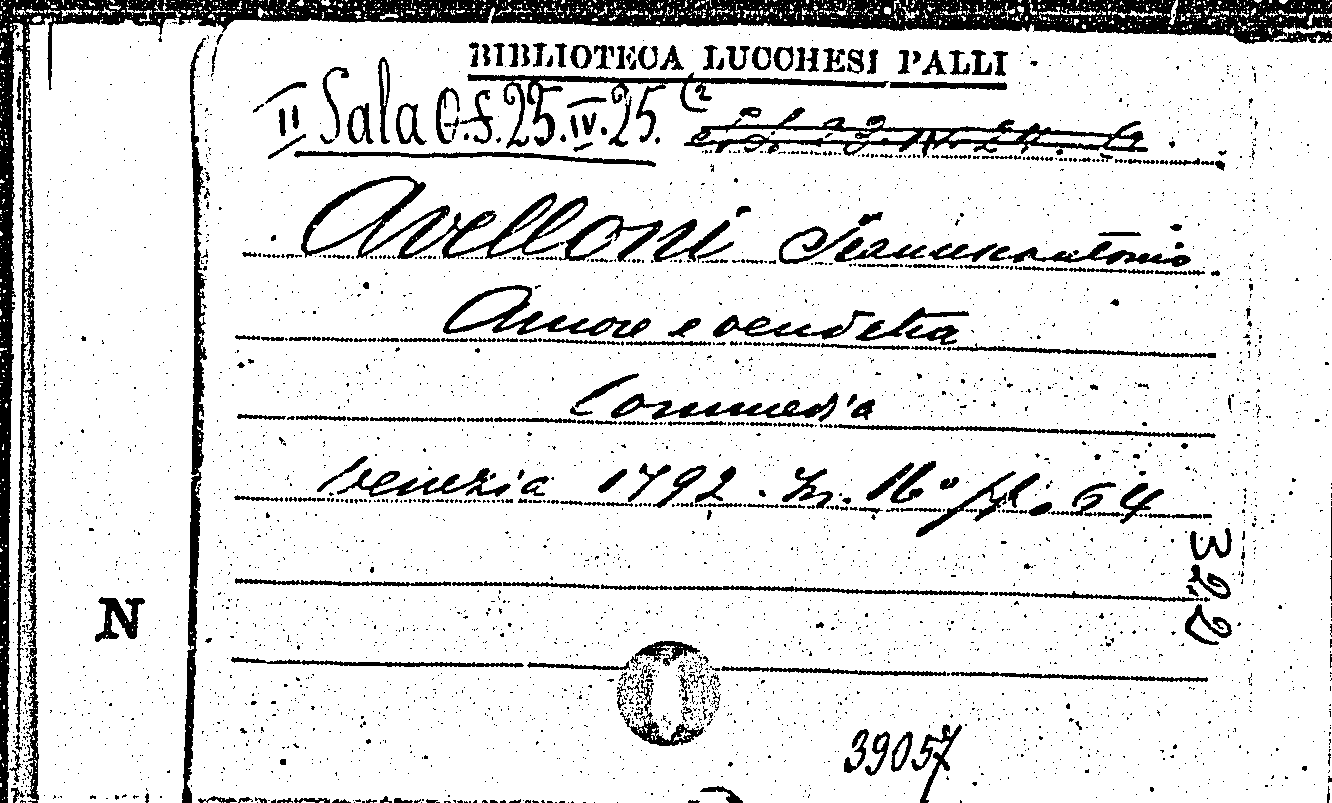 BIBLIOTECA LUCCHESI PALLI
II Sala C.f.25.IV.25. (2
Avelloni Francescantonio
Amore e vendetta
Commedia
Venezia 1792. In. 16° pp. 64
322
N
39057